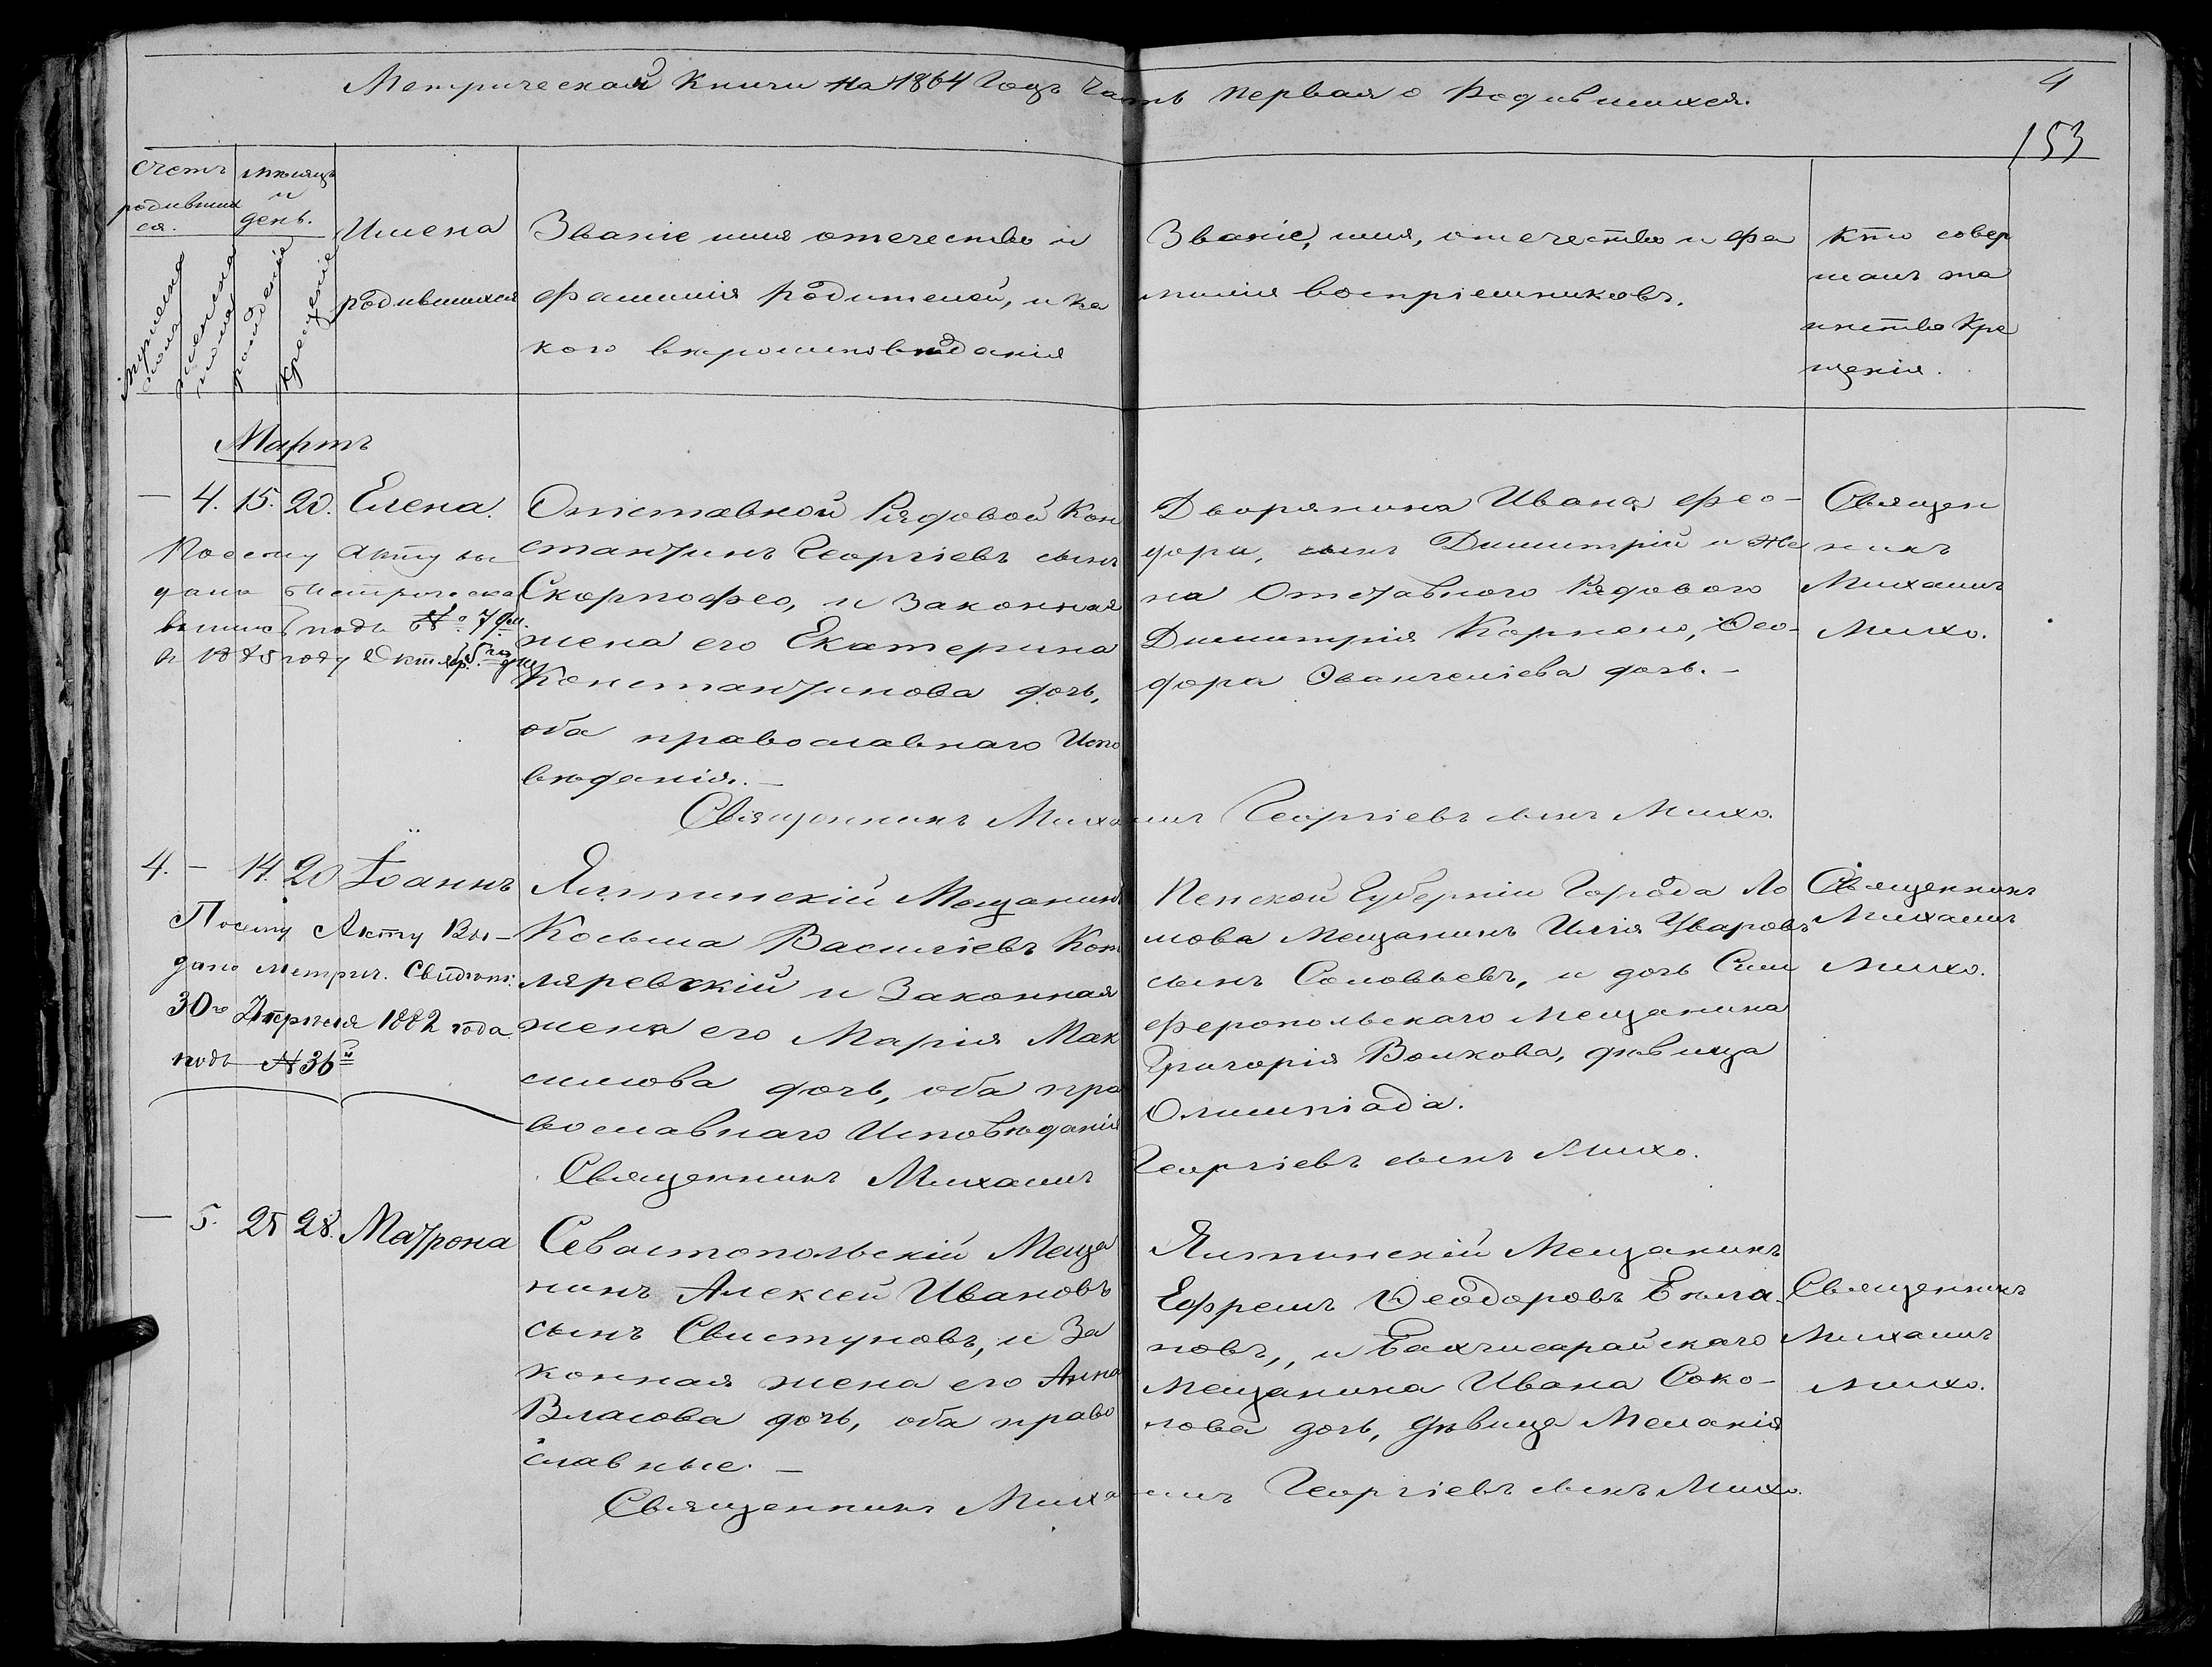 Метрической Книги на 1864 Годъ Часть первая о Родившихся.
4
153
Счетъ
родивших
ся.
мѣсяцъ
и
день.
мужеска
пола
женска
пола
рожденія
крещенія
Имена
родившихся
Званіе имя отечество и
фамилія родителей, и ка
кого вѣроисповѣданія
Званіе, имя, отечество и фа
милія воспріемниковъ.
Кто совер
шалъ та
инство Кре
щенія.
Мартъ
— 4. 15. 20. Елена.
По сему Акту вы
дано Метрическа
подъ № 79
Отставной Рядовой Кон
стантинъ Георгіевъ сынъ
Скорпофео, и Законная
жена его Екатерина
Константинова дочь,
оба православнаго Испо
вѣданія. —
Дворянина Ивана Фео-
дори, сынъ Димитрій и Же
на Отставного Рядового
Димитрія Корнело, Ѳео-
дора Эвангеліева дочь. —
Священ
никъ
Михаилъ
Михо.
Священникъ Михаилъ Георгіевъ сынъ Михо.
4. — 14. 20 Іоаннъ
По сему Акту Вы-
дано метрич. Свидѣт:
30го Апрѣля 1882 года
подъ № 36й
Ялтинскій Мещанинъ
Косьма Василіевъ Кот
ляревскій и Законная
жена его Марія Мак
симова дочь, оба пра
вославнаго Исповѣданія
Пенской Губерніи Города Ло
мова Мещанинъ Илія Уваровъ
сынъ Соловьевъ, и дочь Сим
феропольскаго Мещанина
Григорія Волкова, дѣвица
Олимпіада.
Священникъ
Михаилъ
Михо.
Священникъ Михаилъ Георгіевъ сынъ Михо.
— 5. 25 28. Матрона
Севастопольскій Меща
нинъ Алексей Ивановъ
сынъ Свистуновъ, и За
конная жена его Анна
Власова дочь, оба право
славные. —
Ялтинскій Мещанинъ
Ефремъ Ѳеодоровъ
новъ, и Бахчисарайскаго
Мещанина Ивана Соко-
лова дочь, дѣвица Меланія
Священникъ
Михаилъ
Михо.
Священникъ Михаилъ Георгіевъ сынъ Михо.